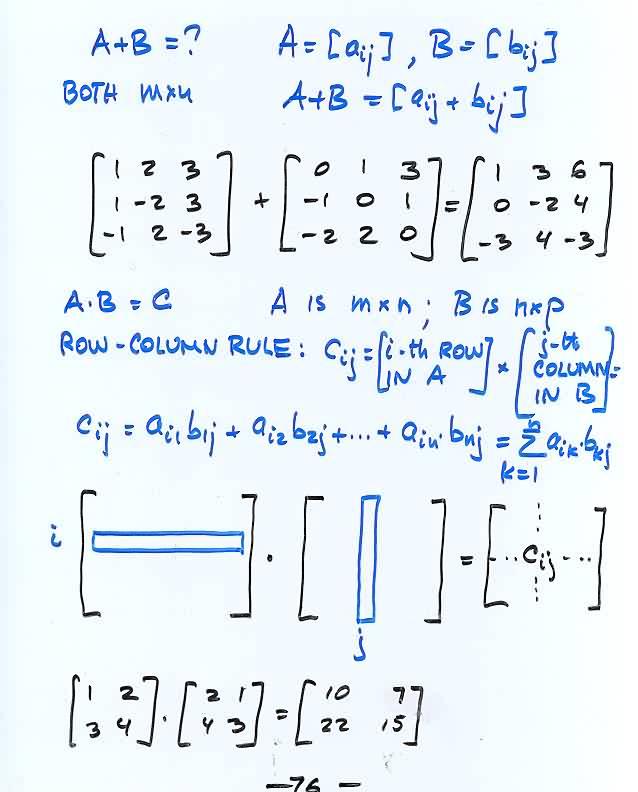 A+B=? A=[aij], B=[bij]
BOTH m×n A+B = [aij + bij]
[1 2 3 [0 1 3 [1 3 6
1 -2 3 + -1 0 1 = 0 -2 4
-1 2 -3] -2 2 0] -3 4 -3]
A·B = C A IS m×n; B IS n×p
ROW-COLUMN RULE: Cij = [i-th ROW IN A] × [j-th COLUMN IN B] =
Cij = ai1 b1j + ai2 b2j + ... + ain·bnj = n∑k=1 aik·bkj
i [ ] · [ ] = [ ... Cij ... ]
j
[1 2 [2 1 [10 7
3 4] · 4 3] = 22 15]
-76-